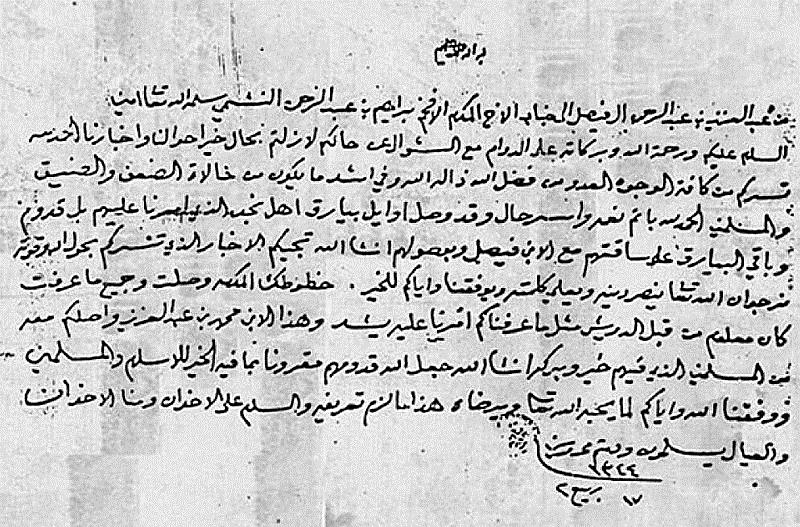 بسم الله الرحمن الرحيم
من عبد العزيز بن عبد الرحمن الفيصل الى جناب الاخ المكرم الافخم ابراهيم بن عبد الرحمن النشمي سلمه الله تعا امين
السلم عليكم ورحمة الله وبركاته على الدوام مع السئوال عن حالكم لازلتم بحال خير احوالنا واخبارنا الحمد لله
تسركم من كافة الوجوه العدو من فضل الله ذاله الله وفي اشد ما يكون من حالات الضعف والضيق
والمسلمين الحمد لله باتم نعمه واسر حال وقد وصل اوايل بيارق اهل نجد الذي امرنا عليهم بالقدوم
وباقي البيارق على ساقتهم مع الابن فيصل وبوصولهم انشا الله تجيكم الاخبار الذي تسركم بحول الله وقوته
نرجوا ان الله تعا ينصر دينه ويعلي كلمته ويوفقنا واياكم للخير . خطوطك المكرمه وصلت وجميع ما عرفت
كان معلوم من قبل الدريش مثل ما عرفناكم امرنا عليه يشد وهذا الابن محمد بن عبد العزيز واصلكم معه
من المسلمين الذي فيهم خير وبركه انشا الله جعل الله قدومهم مقرونا بما فيه الخير للاسلام والمسلمين
ووفقنا الله واياكم لما يحبه الله تعا ويرضاه هذا ما لزم تعريفه والسلم على الاخوان ومنا الاخوان
والعيال يسلمون ودمتم محروسين
١٣٤٤
١٧ ربيع ٢